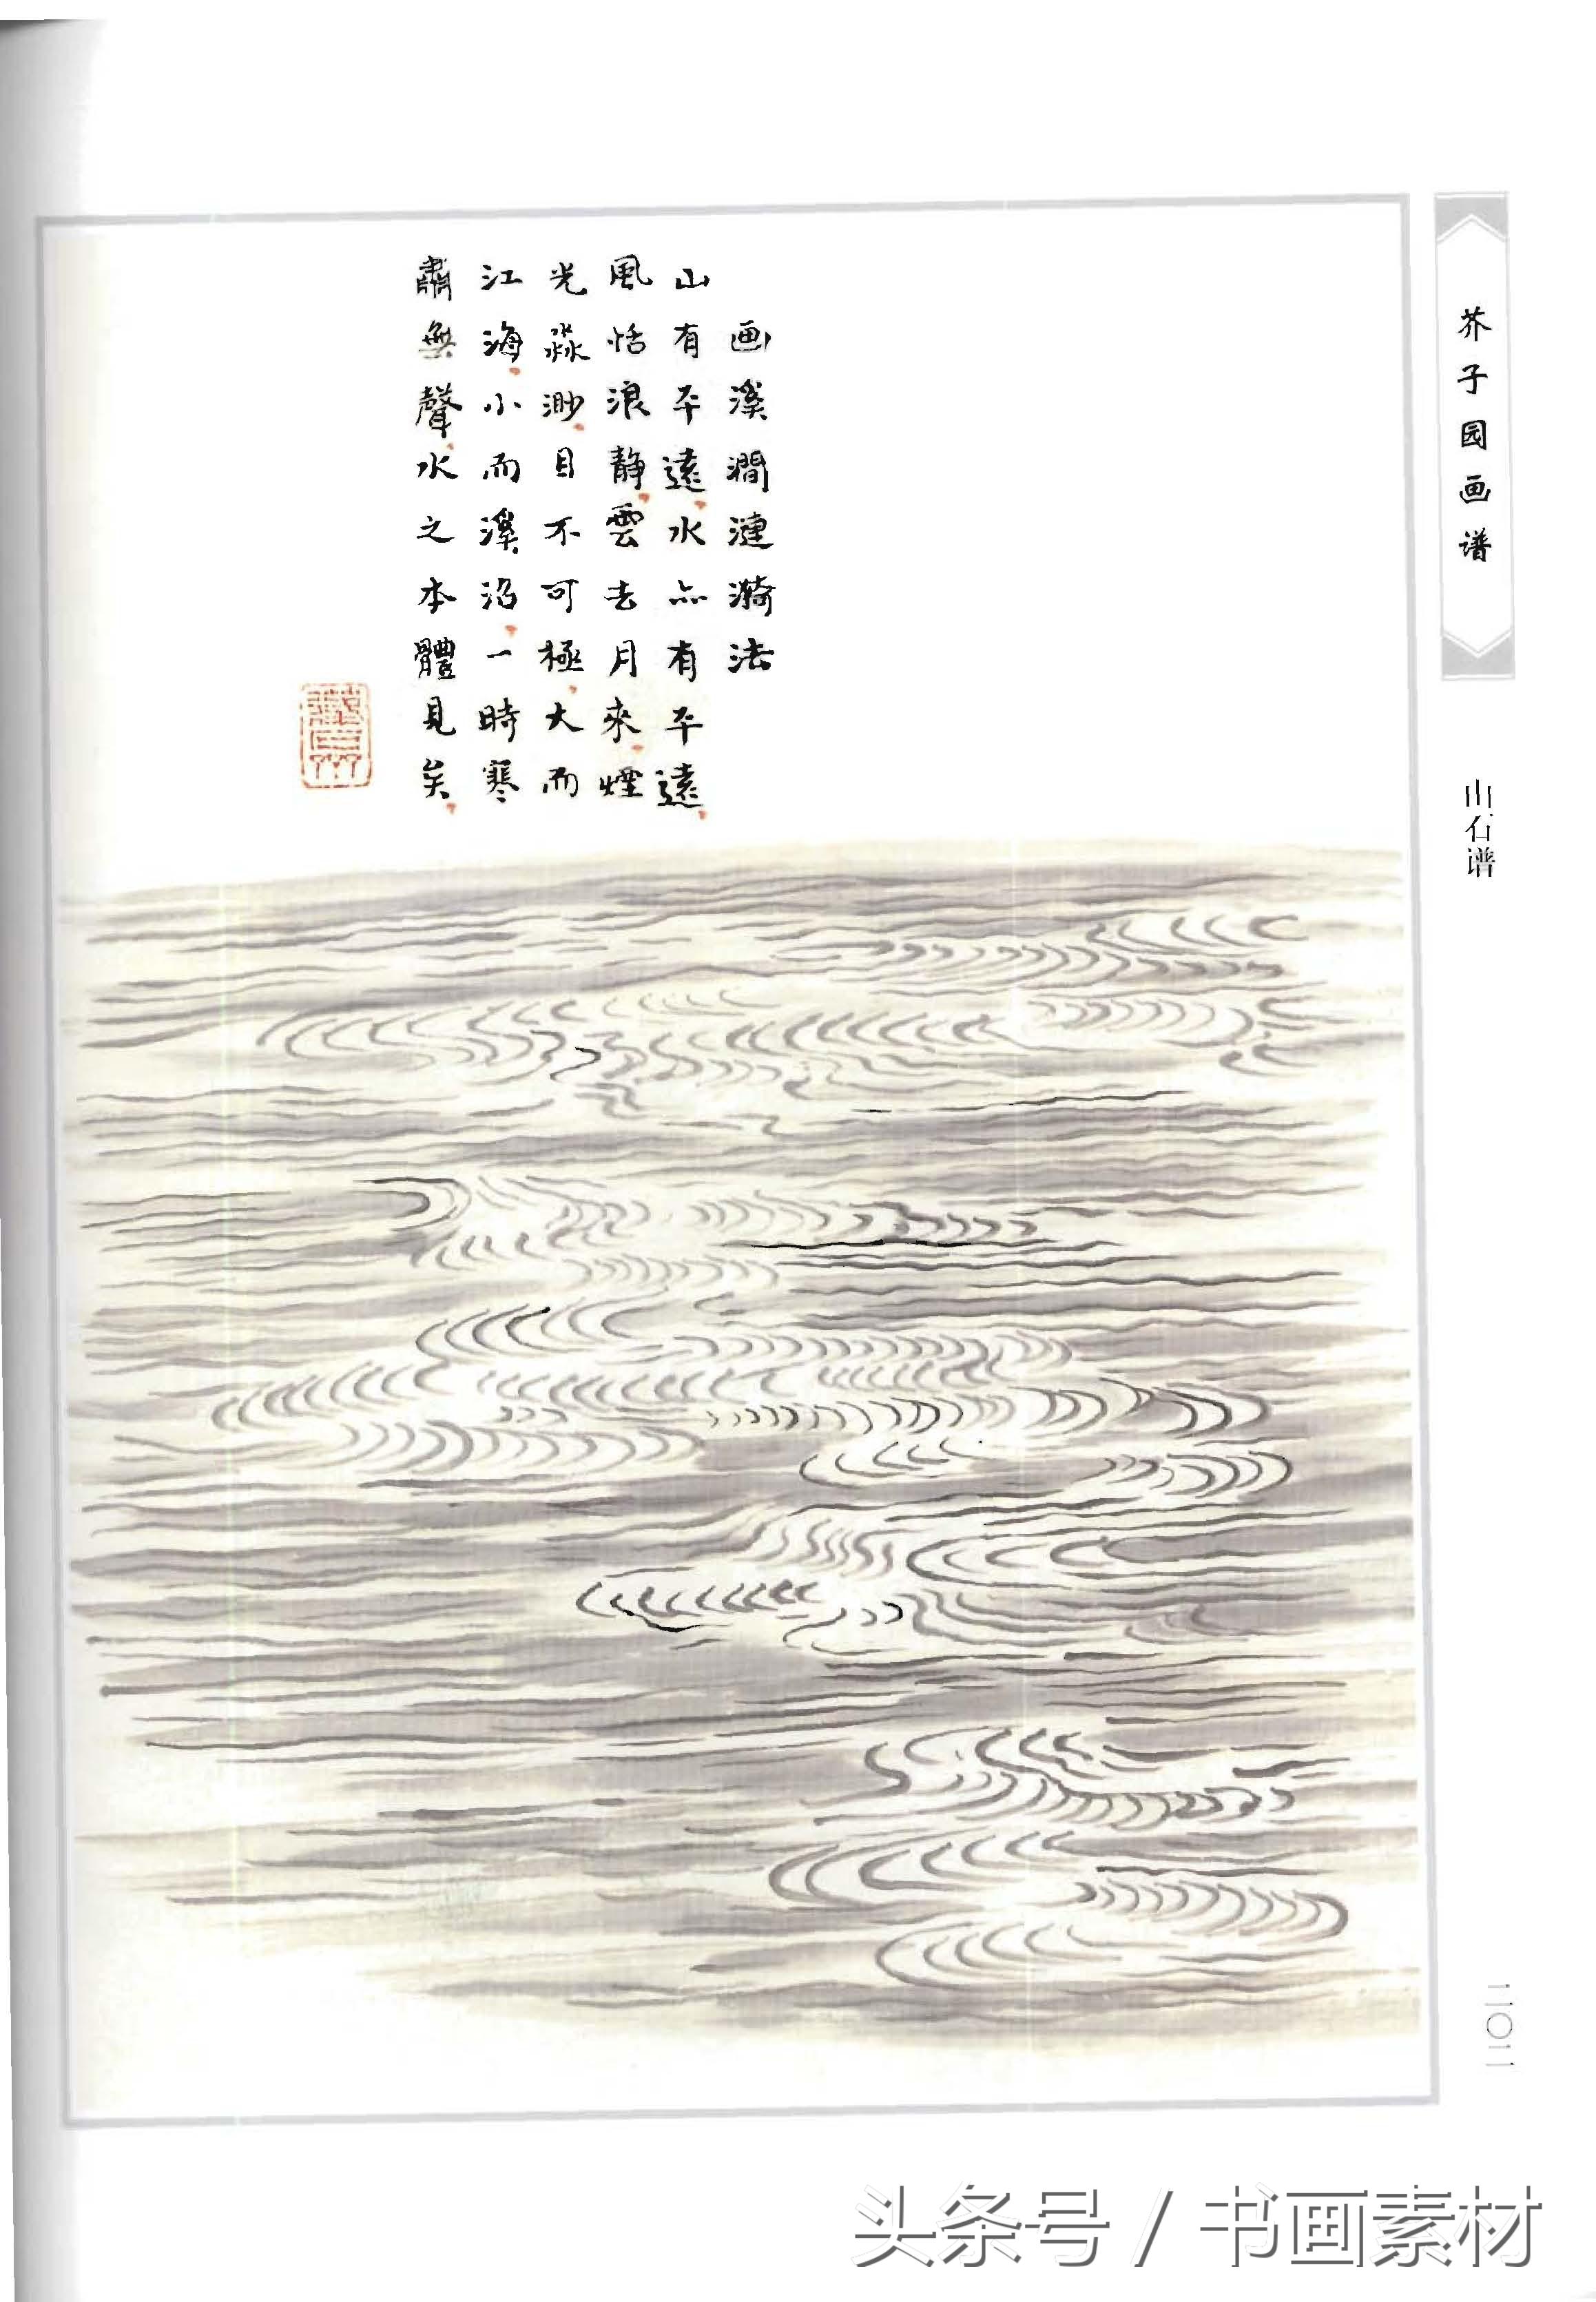 芥子园画谱
山石谱
画溪澗漣漪法
山有平遠水亦有平遠
風恬浪静雲去月來煙
光淼渺目不可極大而
江海小而溪沼一時寒
肅無聲水之本體見矣
二〇二
头条号 / 书画素材